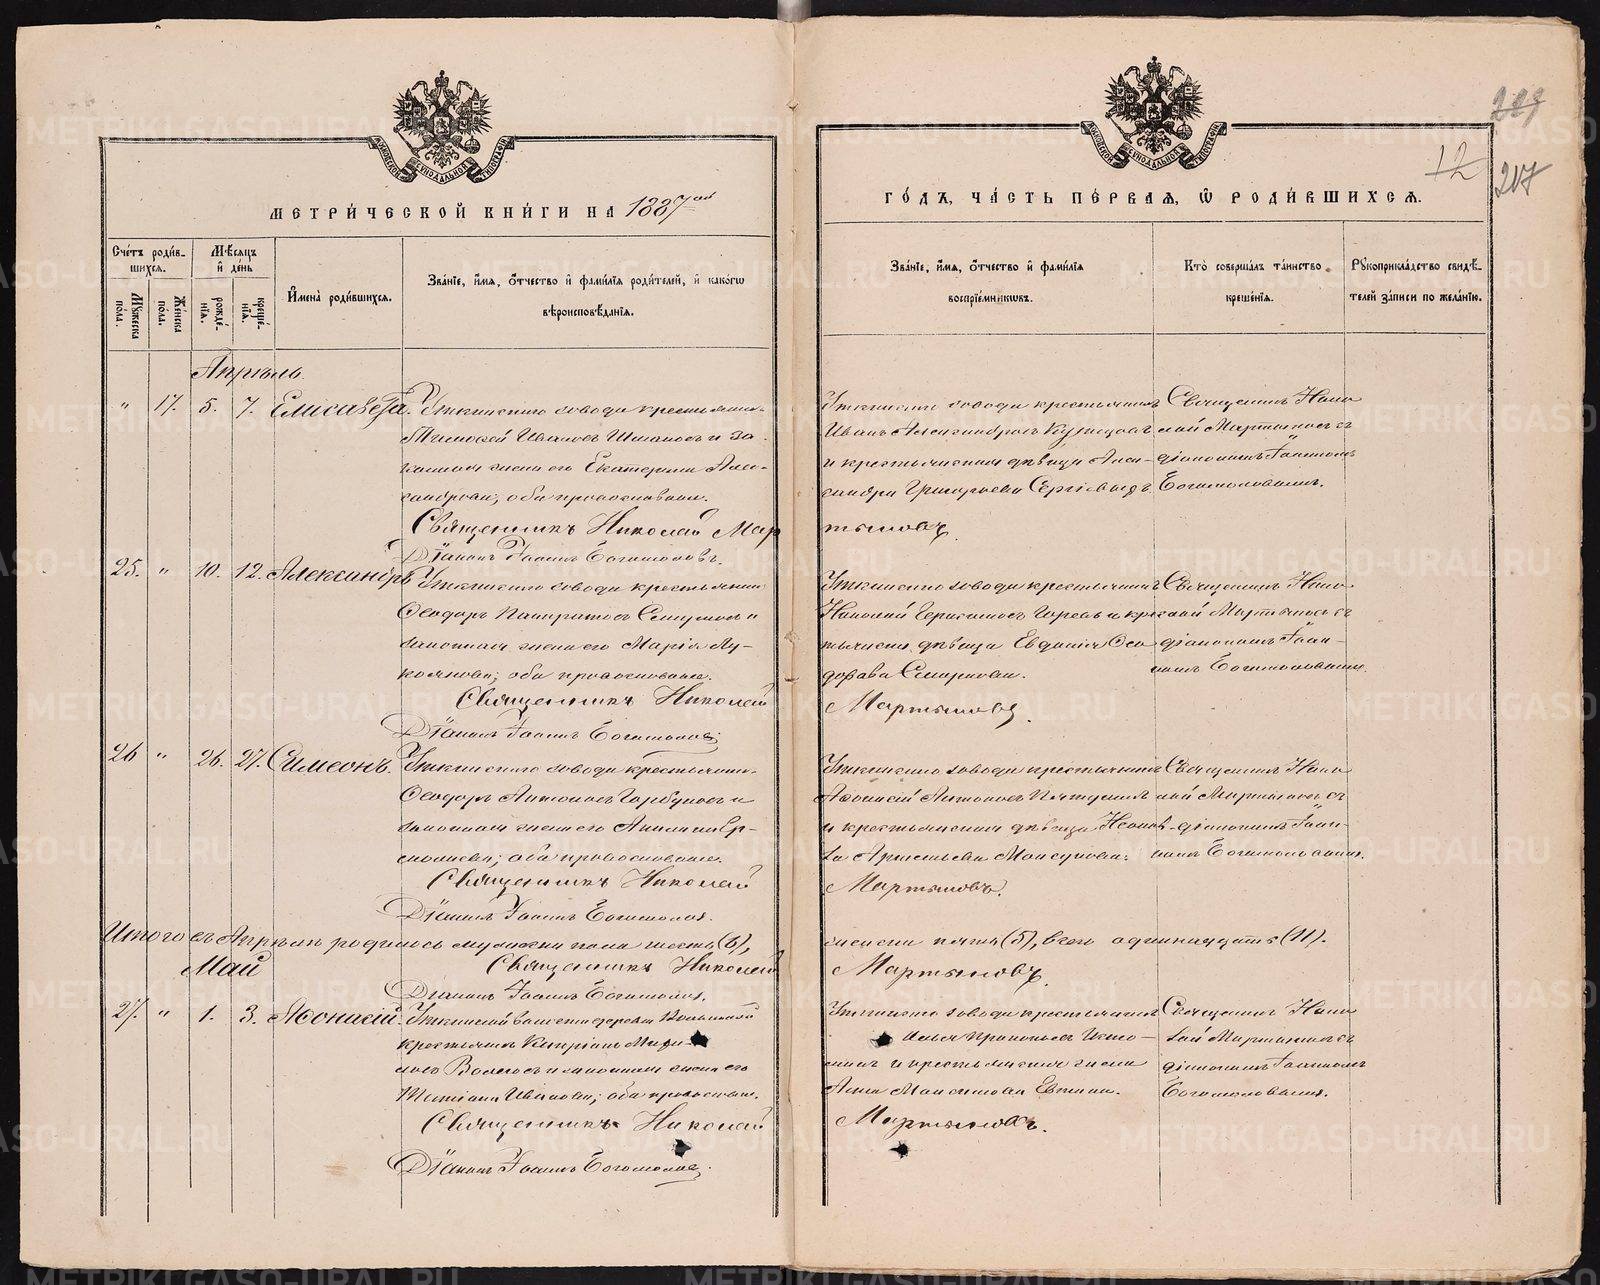 МЕТРИ́ЧЕСКОЙ КНИ́ГИ НА 1887ой
Сче́тъ роди́в-
шихсѧ.
Мѣсѧцъ
и҆ де́нь
Мꙋ́жеска
по́ла.
Же́нска
по́ла.
рожде́-
нїѧ.
креще́-
нїѧ.
И҆мена̀ роди́вшихсѧ.
Зва́нїе, и҆́мѧ, ѻ҆́тчество и҆ фами́лїѧ роди́телей, и҆ како́гѡ
вѣроисповѣ́данїѧ.
Апрѣль.
" 17. 5. 7. Елисавета.
Уткинскаго завода крестьянинъ
Тимофей Ивановъ и за-
конная жена его Екатерина Алек-
сандрова; оба православные.
Священникъ Николай Мар
Діаконъ Іоаннъ Богомоловъ.
25. " 10. 12. Александръ
Уткинскаго завода крестьянинъ
Ѳеодоръ Панкратовъ и
законная жена его Марія Лу-
коянова; оба православные.
Священникъ Николай
Діаконъ Іоаннъ Богомоловъ
26 " 26. 27. Симеонъ.
Уткинскаго завода крестьянинъ
Ѳеодоръ Антоновъ Горбуновъ и
законная жена его Ер-
молаева; оба православные.
Священникъ Николай
Діаконъ Іоаннъ Богомоловъ.
Итого въ Апрѣлѣ родилось мужеска пола шесть (6),
Священникъ Николай
Діаконъ Іоаннъ Богомоловъ.
Май
27. " 1. 3. Аѳонасій.
Уткинской волости деревни
крестьянинъ Кипріанъ
Волковъ и законная жена его
Татіана Иванова; оба православные.
Священникъ Николай
Діаконъ Іоаннъ Богомоловъ.
12
217
ГО́ДЪ, ЧА́СТЬ ПЕ́РВАѦ, Ѡ҆ РОДИ́ВШИХСѦ.
Зва́нїе, и҆́мѧ, ѻ҆́тчество и҆ фами́лїѧ
воспрїе́мникѡвъ.
Кто̀ соверша́лъ та́инство
креще́нїѧ.
Рꙋкоприкла́дство свидѣ́-
телей за́писи по жела́нїю.
Уткинскаго завода крестьянинъ
Иванъ Александровъ Кузнецовъ
и крестьянская дѣвица Алек-
сандра Григорьева
Священникъ Нико-
лай Мартыновъ съ
діакономъ Іоанномъ
Богомоловымъ.
тыновъ.
Уткинскаго завода крестьянинъ
Николай Герасимовъ и крес-
тьянская дѣвица Евдокія Ѳео-
дорова Смирнова.
Священникъ Нико-
лай Мартыновъ съ
діакономъ Іоан-
номъ Богомоловымъ.
Мартыновъ.
Уткинскаго завода крестьянинъ
Аѳонасій Антоновъ
и крестьянская дѣвица
Артемьева
Священникъ Нико-
лай Мартыновъ съ
діакономъ Іоан-
номъ Богомоловымъ.
Мартыновъ.
женска пять (5), всего одиннадцать (11).
Мартыновъ.
Уткинскаго завода крестьянинъ
Прокопьевъ
и крестьянская жена
Анна Максимова
Священникъ Нико-
лай Мартыновъ съ
діакономъ Іоанномъ
Богомоловымъ.
Мартыновъ.
METRIKI.GASO-URAL.RU